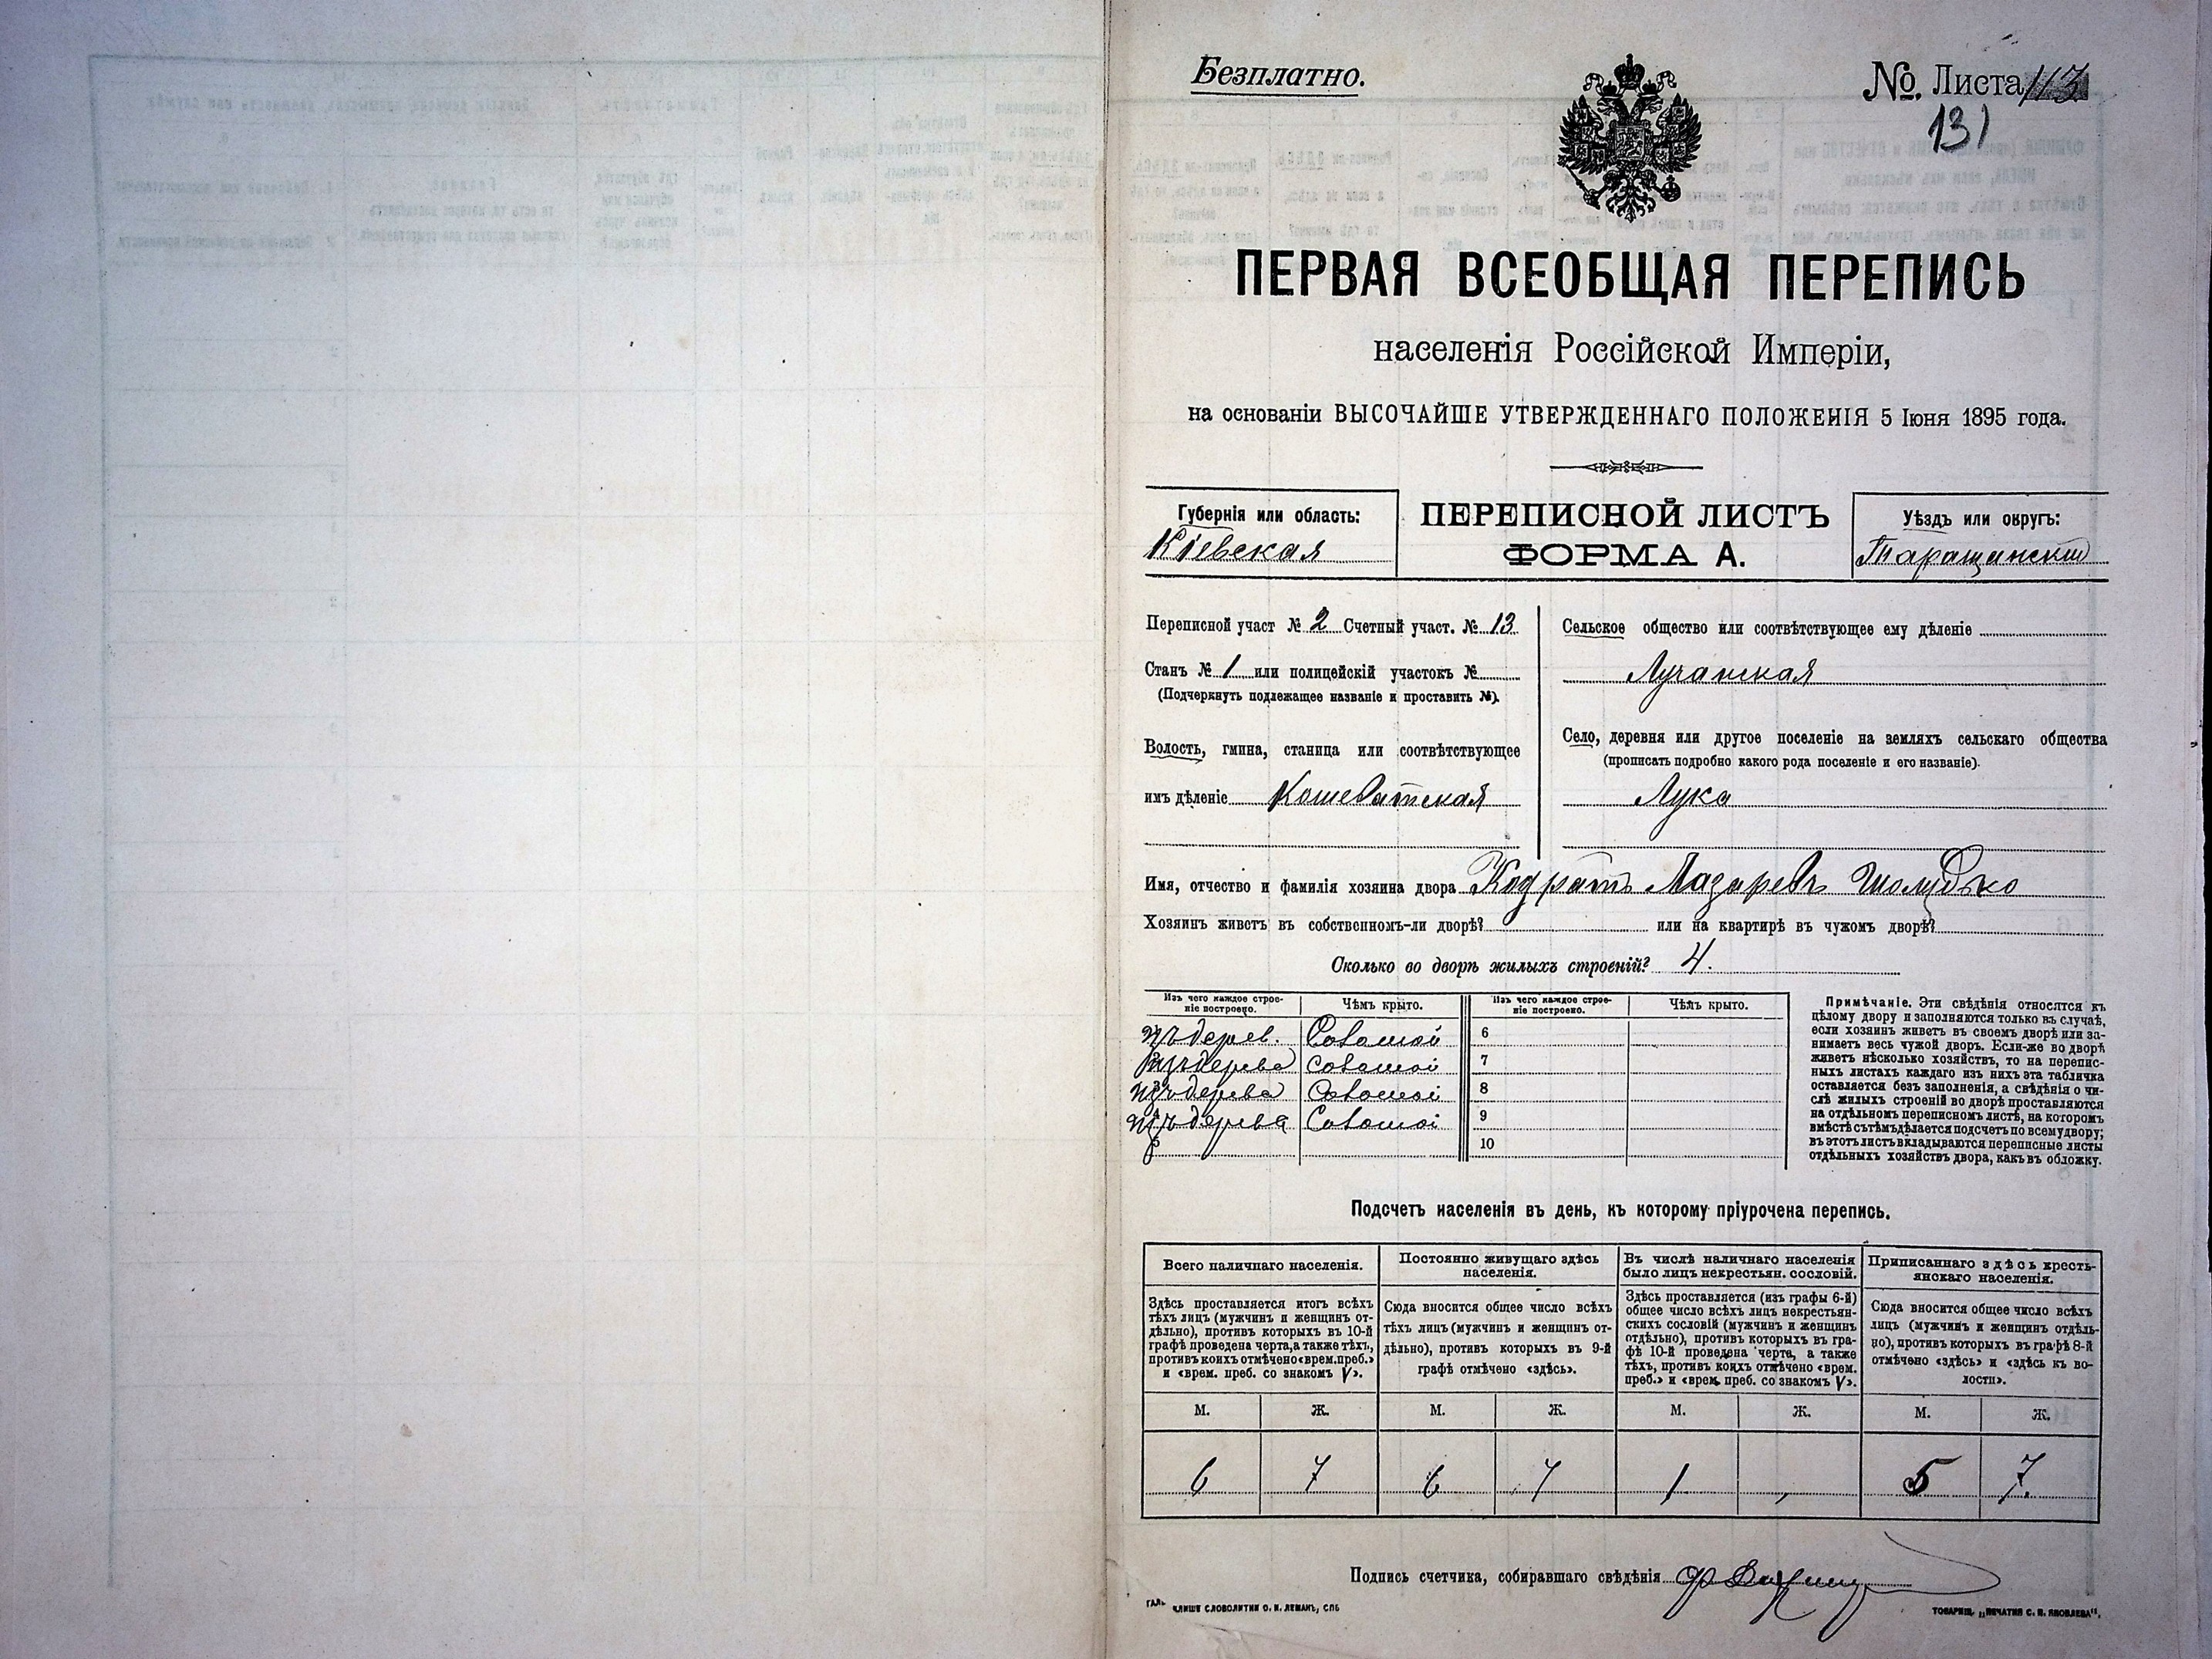 Безплатно.
№. Листа 113
131
ПЕРВАЯ ВСЕОБЩАЯ ПЕРЕПИСЬ
населенія Россійской Имперіи,
на основаніи ВЫСОЧАЙШЕ УТВЕРЖДЕННАГО ПОЛОЖЕНІЯ 5 Іюня 1895 года.
Губернія или область:
Кіевская
ПЕРЕПИСНОЙ ЛИСТЪ
ФОРМА А.
Уѣздъ или округъ:
Таращанскій
Переписной участ № 2 Счетный участ. № 13
Станъ № 1 или полицейскій участокъ №
(Подчеркнуть подлежащее названіе и проставить №).
Волость, гмина, станица или соотвѣтствующее
имъ дѣленіе Кошеватская
Сельское общество или соотвѣтствующее ему дѣленіе
Лучанская
Село, деревня или другое поселеніе на земляхъ сельскаго общества
(прописать подробно какого рода поселеніе и его названіе).
Лука
Имя, отчество и фамилія хозяина двора Кодратъ Лазаревъ Шолудько
Хозяинъ живетъ въ собственномъ-ли дворѣ? или на квартирѣ въ чужомъ дворѣ?
Сколько во дворѣ жилыхъ строеній? 4.
Изъ чего каждое строе-
ніе построено.
Чѣмъ крыто.
Изъ чего каждое строе-
ніе построено.
Чѣмъ крыто.
изъ дерев. Соломой 6
изъ дерева соломой 7
изъ дерева Соломой 8
изъ дерева Соломой 9
5 10
Примѣчаніе. Эти свѣдѣнія относятся къ
цѣлому двору и заполняются только въ случаѣ,
если хозяинъ живетъ въ своемъ дворѣ или за-
нимаетъ весь чужой дворъ. Если-же во дворѣ
живетъ нѣсколько хозяйствъ, то на перепис-
ныхъ листахъ каждаго изъ нихъ эта табличка
оставляется безъ заполненія, а свѣдѣнія о чи-
слѣ жилыхъ строеній во дворѣ проставляются
на отдѣльномъ переписномъ листѣ, на которомъ
вмѣстѣ съ тѣмъ дѣлается подсчетъ по всему двору;
въ этотъ листъ вкладываются переписные листы
отдѣльныхъ хозяйствъ двора, какъ въ обложку.
Подсчетъ населенія въ день, къ которому пріурочена перепись.
Всего наличнаго населенія.
Постоянно живущаго здѣсь
населенія.
Въ числѣ наличнаго населенія
было лицъ некрестьян. сословій.
Приписаннаго здѣсь кресть-
янскаго населенія.
Здѣсь проставляется итогъ всѣхъ
тѣхъ лицъ (мужчинъ и женщинъ от-
дѣльно), противъ которыхъ въ 10-й
графѣ проведена черта, а также тѣхъ,
противъ коихъ отмѣчено «врем. преб.»
и «врем. преб. со знакомъ V».
Сюда вносится общее число всѣхъ
тѣхъ лицъ (мужчинъ и женщинъ от-
дѣльно), противъ которыхъ въ 9-й
графѣ отмѣчено «здѣсь».
Здѣсь проставляется (изъ графы 6-й)
общее число всѣхъ лицъ некрестьян-
скихъ сословій (мужчинъ и женщинъ
отдѣльно), противъ которыхъ въ гра-
фѣ 10-й проведена черта, а также
тѣхъ, противъ коихъ отмѣчено «врем.
преб.» и «врем. преб. со знакомъ V».
Сюда вносится общее число всѣхъ
лицъ (мужчинъ и женщинъ отдѣль-
но), противъ которыхъ въ графѣ 8-й
отмѣчено «здѣсь» и «здѣсь къ во-
лости».
М. Ж. М. Ж. М. Ж. М. Ж.
6 7 6 7 1 , 5 7.
Подпись счетчика, собиравшаго свѣдѣнія
КЛИШЕ СЛОВОЛИТНИ О. И. ЛЕМАНЪ, СПБ
ТОВАРИЩ. „ПЕЧАТНЯ С. П. ЯКОВЛЕВА“.